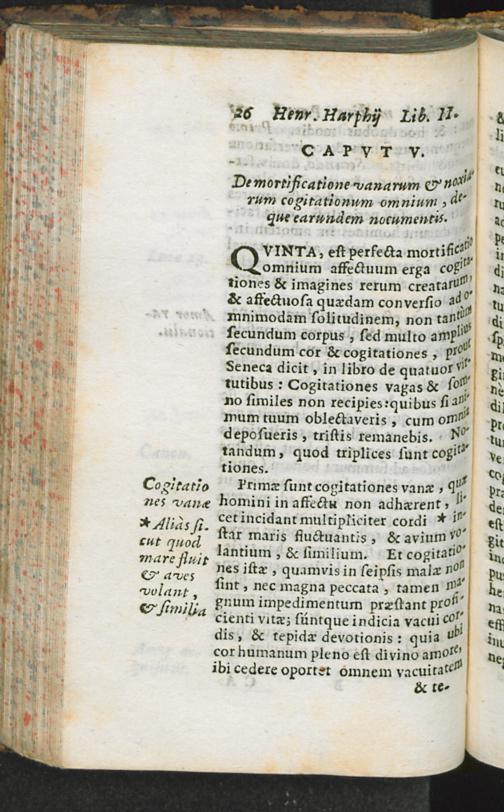 26 Henr. Harphij Lib. II.
CAPVT V.
De mortificatione vanarum & noxia-
rum cogitationum omnium, de-
que earundem nocumentis.
QVINTA, est perfecta mortificatio
omnium affectuum erga cogita-
tiones & imagines rerum creatarum,
& affectuosa quædam conversio ad o-
mnimodam solitudinem, non tantùm
secundum corpus, sed multo amplius
secundum cor & cogitationes, prout
Seneca dicit, in libro de quatuor vir-
tutibus: Cogitationes vagas & som-
no similes non recipies: quibus si ani-
mum tuum oblectaveris, cum omnia
deposueris, tristis remanebis. No-
tandum, quod triplices sunt cogita-
tiones.
Cogitatio
nes vanæ
* Aliàs si-
cut quod
mare fluit
& aves
volant,
& similia
Primæ sunt cogitationes vanæ, quæ
homini in affectu non adhærent, li-
cet incidant multipliciter cordi * in-
star maris fluctuantis, & avium vo-
lantium, & similium. Et cogitatio-
nes istæ, quamvis in seipsis malæ non
sint, nec magna peccata, tamen ma-
gnum impedimentum præstant profi-
cienti vitæ; súntque indicia vacui cor-
dis, & tepidæ devotionis: quia ubi
cor humanum pleno est divino amore,
ibi cedere oportet omnem vacuitatem
& te-